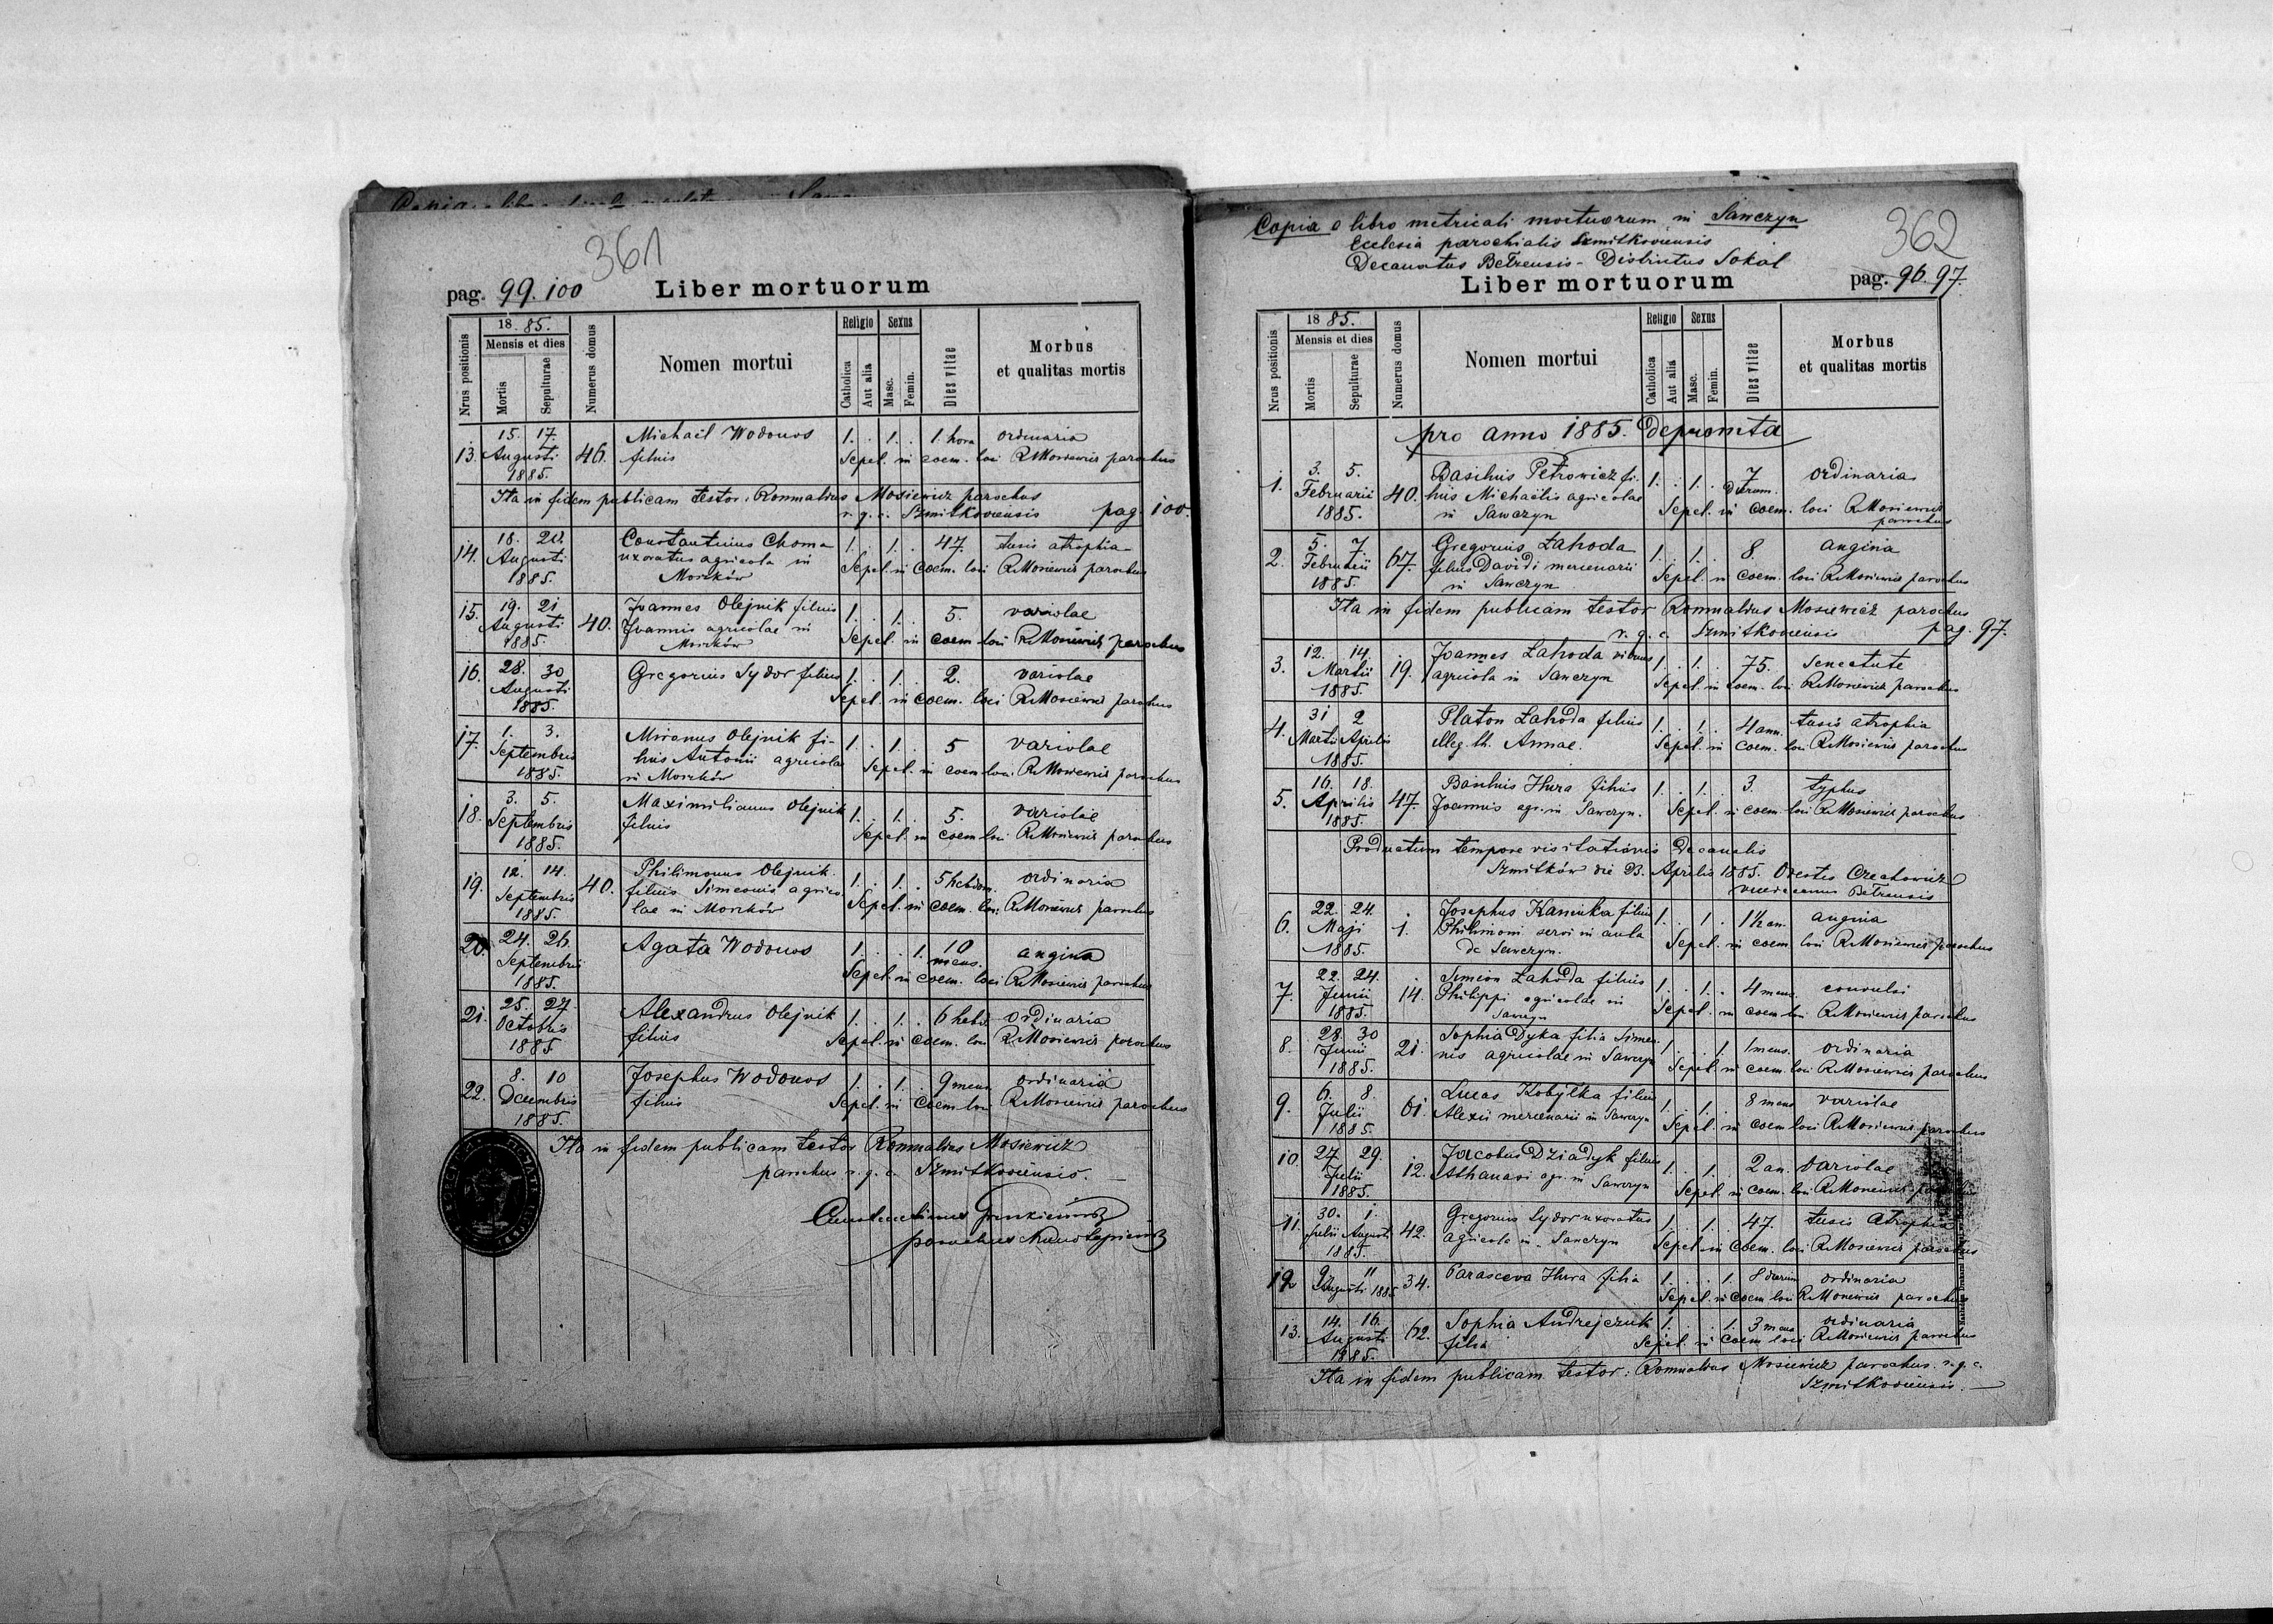 361
pag. 99. 100 Liber mortuorum
Nrus positionis
18 85.
Mensis et dies
Mortis
Sepulturae
Numerus domus
Nomen mortui
Religio
Catholica
Aut alia
Sexus
Masc.
Femin.
Dies vitae
Morbus
et qualitas mortis
15. 17. Michaël Wodonos 1. . 1. . 1. hora ordinaria
13. Augusti 46. filius Sepel. in coem. loci R Mosiewicz parochus
1885.
Ita in fidem publicam testor: Romualdus Mosiewicz parochus
r. g. c. Szmitkoviensis pag. 100.
18. 20. Constantinus Choma 1. . 1. . 47. tusis atrophia
14. Augusti uxoratus agricola in Sepel. in coem. loci R Mosiewicz parochus
1885. Morzków
19. 21 Joannes Olejnik filius 1. . 1. . 5. variolae
15. Augusti 40. Joannis agricolae in Sepel. in coem loci R Mosiewicz parochus
1885. Morzków
16. 28. 30 Gregorius Sydor filius 1. . 1. . 2. variolae
Augusti Sepel. in coem. loci R Mosiewicz parochus
1885.
1. 3. Mironus Olejnik fi- 1. . 1. . 5 variolae
17. Septembris lius Antonii agricolae Sepel. in coem loci R Mosiewicz parochus
1885. in Morzków
3. 5. Maximilianus Olejnik 1. . 1. . 5. variolae
18. Septembris filius Sepel. in coem loci R Mosiewicz parochus
1885.
12. 14. Philimonus Olejnik 1. . 1. . 5 hebdom. ordinaria
19. Septembris 40. filius Simeonis agrico- Sepel. in coem. loci R Mosiewicz parochus
1885. lae in Morzków
20. 24. 26. Agata Wodonos 1. . . 1. 10 mens. angina
Septembris Sepel. in coem. loci R Mosiewicz parochus
1885.
25. 27. Alexandrus Olejnik 1. . 1. . 6 hebd. ordinaria
21. Octobris filius Sepel. in coem. loci R Mosiewicz parochus
1885.
8. 10 Josephus Wodonos 1. . 1. . 9 mens. ordinaria
22. Decembris filius Sepel. in coem loci R Mosiewicz parochus
1885.
Ita in fidem publicam testor Romualdus Mosiewicz
parochus r. g. c. Szmitkoviensis.
parochus
Copia e libro metricali mortuorum in Sawczyn 362
Ecclesia parochialis Szmitkoviensis
Decanatus Bełzensis - Districtus Sokal
Liber mortuorum pag. 96. 97.
Nrus positionis
18 85.
Mensis et dies
Mortis
Sepulturae
Numerus domus
Nomen mortui
Religio
Catholica
Aut alia
Sexus
Masc.
Femin.
Dies vitae
Morbus
et qualitas mortis
pro anno 1885. depromta
3. 5. Basilius Petrowicz fi- 1. . 1. . 7 dierum. ordinaria
1. Februarii 40. lius Michaëlis agricolae Sepel. in coem. loci R Mosiewicz
1885. in Sawczyn parochus
5. 7. Gregorius Łahoda 1. . 1. . 8. angina
2. Februarii 67. filius Davidi mercenarii Sepel. in coem. loci R Mosiewicz parochus
1885. in Sawczyn
Ita in fidem publicam testor Romualdus Mosiewicz parochus
r. g. c. Szmitkoviensis pag. 97.
12. 14. Joannes Łahoda viduus 1. . 1. . 75. Senectute
3. Martii 19. agricola in Sawczyn Sepel. in coem. loci R Mosiewicz parochus
1885.
31 2 Platon Łahoda filius 1. . 1. . 4 ann. tusis atrophia
4. Martii Aprilis illeg. th. Annae. Sepel. in coem. loci R Mosiewicz parochus
1885.
16. 18. Basilius Hura filius 1. . 1. . 3. typhus
5. Aprilis 47. Joannis agr. in Sawczyn. Sepel. in coem loci R Mosiewicz parochus
1885.
Productum tempore visitationis decanalis
Szmitków die Aprilis 1885. Orestes Czechowicz
vicedecanus Bełzensis
22. 24. Josephus Kaminka filius 1. . 1. . 1½ an. angina
6. Maji 1. Philimoni servi in aula Sepel. in coem loci R Mosiewicz parochus
1885. de Sawczyn.
22. 24. Simeon Łahoda filius 1. . 1. . 4 mens. convulsi
7. Junii 14. Philippi agricolae in Sepel. in coem loci R Mosiewicz parochus
1885. Sawczyn
28. 30 Sophia Dyka filia Simeo- 1. . . 1. 1 mens. ordinaria
8. Junii 21. nis agricolae in Sawczyn Sepel. in coem. loci R Mosiewicz parochus
1885.
6. 8. Lucas Kobyłka filius 1. . 1. . 8 mens variolae
9. Julii 61. Alexii mercenarii in Sawczyn Sepel. in coem loci R Mosiewicz parochus
1885.
10. 27. 29. Jacobus Dziadyk filius 1. . 1. . 2 an. variolae
Julii 12. Athanasi agr. in Sawczyn Sepel. in coem. loci R Mosiewicz parochus
1885.
30. 1. Gregorius Sydor uxoratus 1. . 1. . 47. tusis atrophia
11. Julii Augusti 42. agricola in Sawczyn Sepel. in coem. loci R Mosiewicz parochus
1885.
12 9 11 34. Parasceva Hura filia 1. . . 1. 8 dierum ordinaria
Augusti 1885. Sepel. in coem loci R Mosiewicz parochus
14. 16. Sophia Andrejczuk 1. . . 1. 3 mens ordinaria
13. Augusti 62. filia Sepel. in coem loci R Mosiewicz parochus
1885.
Ita in fidem publicam testor: Romualdus Mosiewicz parochus. r. g. c.
Szmitkoviensis.